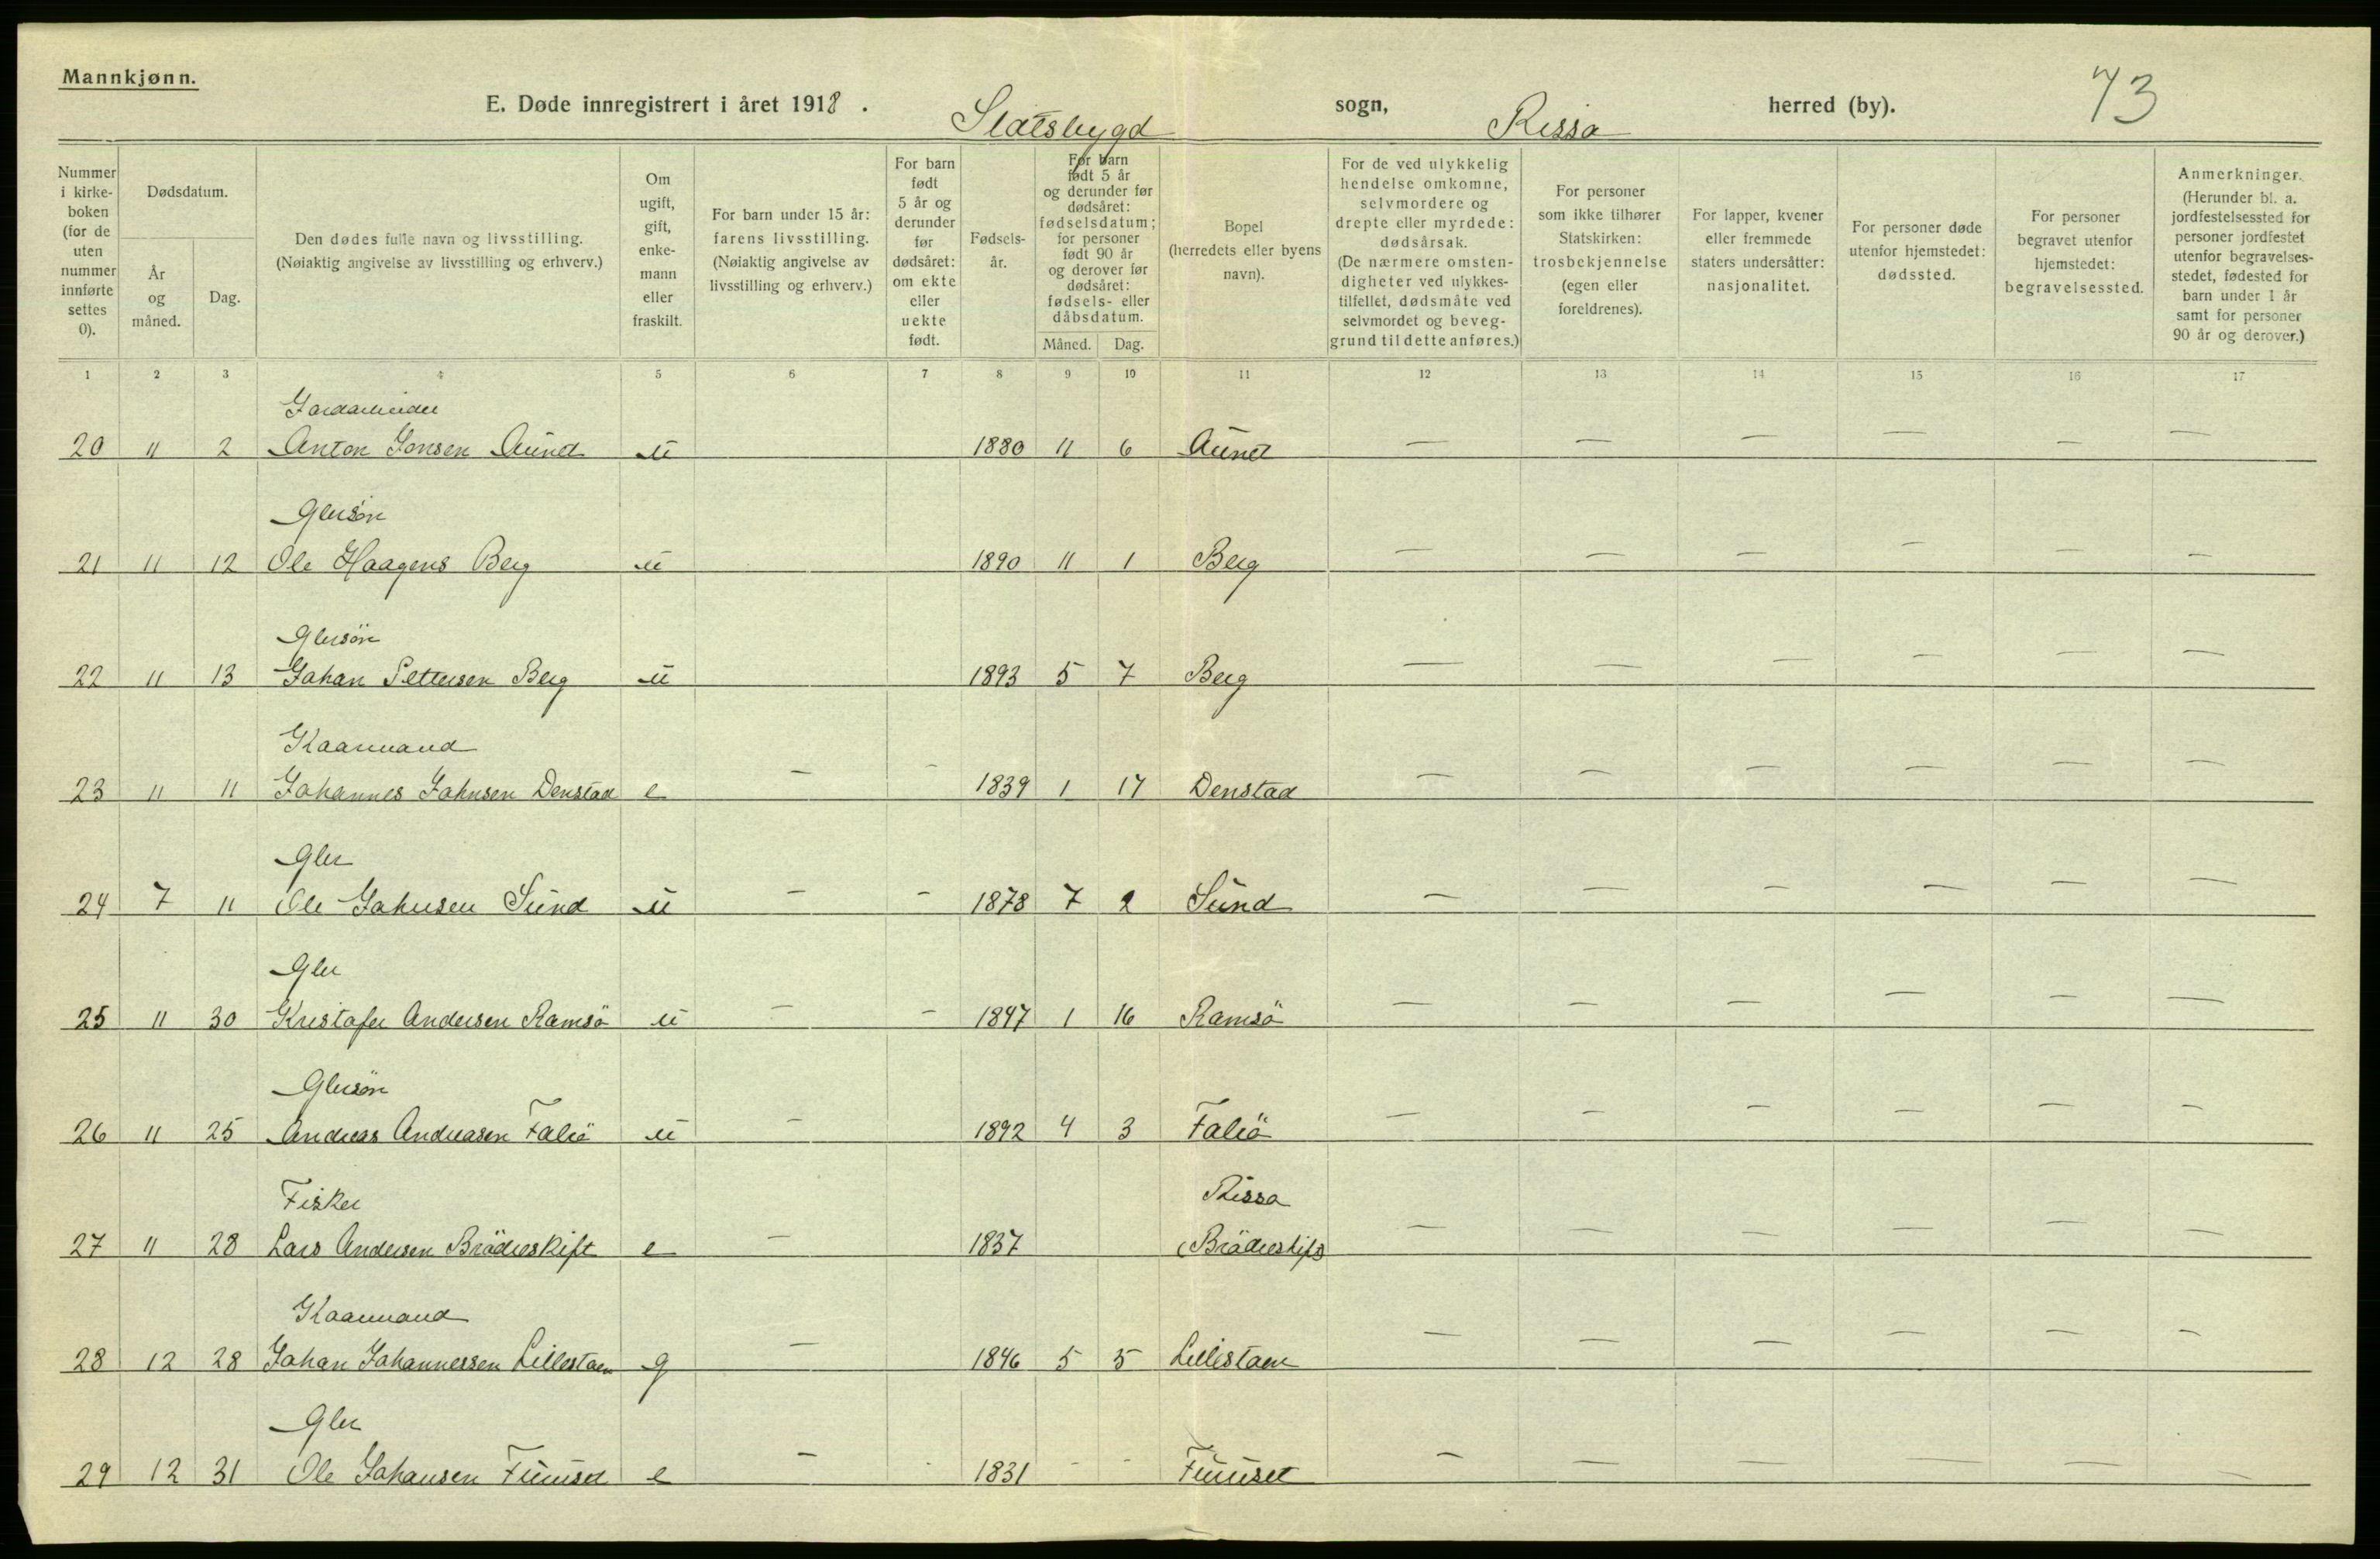 Mannkjønn.
E. Døde innregistrert i året 1918. Statsbygd sogn, Rissa herred (by). 73
Nummer i kirke-boken (for de uten nummer innførte settes 0).
Dødsdatum.
År og måned.
Dag.
Den dødes fulle navn og livsstilling. (Nøiaktig angivelse av livsstilling og erhverv.)
Om ugift, gift, enke-mann eller fraskilt.
For barn under 15 år: farens livsstilling. (Nøiaktig angivelse av livsstilling og erhverv.)
For barn født 5 år og derunder før dødsåret: om ekte eller uekte født.
Fødsels-år.
For barn født 5 år og derunder før dødsåret: fødselsdatum; for personer født 90 år og derover før dødsåret: fødsels- eller dåbsdatum.
Måned. Dag.
Bopel (herredets eller byens navn).
For de ved ulykkelig hendelse omkomne, selvmordere og drepte eller myrdede: dødsårsak. (De nærmere omsten-digheter ved ulykkes-tilfellet, dødsmåte ved selvmordet og beveg-grund til dette anføres.)
For personer som ikke tilhører Statskirken: trosbekjennelse (egen eller foreldrenes).
For lapper, kvener eller fremmede staters undersåtter: nasjonalitet.
For personer døde utenfor hjemstedet: dødssted.
For personer begravet utenfor hjemstedet: begravelsessted.
Anmerkninger. (Herunder bl. a. jordfestelsessted for personer jordfestet utenfor begravelses-stedet, fødested for barn under 1 år samt for personer 90 år og derover.)
1 2 3 4 5 6 7 8 9 10 11 12 13 14 15 16 17
Gardarbeider
20 " 2 Anton Jonsen Aune u 1880 11 6 Aune — — — — — —
Glersön
21 " 12 Ole Haagens Berg u 1890 11 1 Berg — — — — — —
Glersön
22 " 13 Johan Pettersen Berg u 1893 5 7 Berg — — — — — —
Kaarmand
23 " 11 Johannes Johnsen Denstad e — - 1839 1 17 Denstad — — — — — —
Gler
24 7 11 Ole Johnsen Sund u — - 1878 7 2 Sund — — — — — —
Gler
25 " 30 Kristofer Andersen Ramsö u — - 1847 1 16 Ramsö — — — — — —
Glersön
26 " 25 Andreas Andreasen Faliö u — 1892 4 3 Faliö — — — — — —
Fisker Rissa
27 " 28 Lars Andersen Bräderskift e — 1837 (Bräderskift) — — — — — —
Kaarmand
28 12 28 Johan Johannessen Lillestaen g — 1846 5 5 Lillestaen — — — — — —
Gler
29 12 31 Ole Johansen Fuuset e — - 1831 - - Fuuset — — — — — —